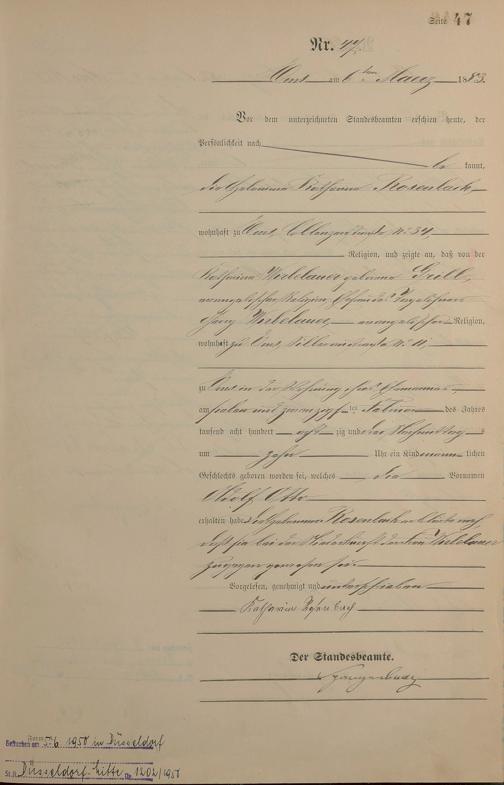 Seite 47
Nr. 47.
Ems am 6ten Maerz 1883.
Vor dem unterzeichneten Standesbeamten erschien heute, der
Persönlichkeit nach
be kannt,
die Hebamme Katharina Rosenbach
wohnhaft zu Ems, Coblenzerstraße No 34,
Religion, und zeigte an, daß von der
Katharina Wirbelauer geborene Grill,
evangelischer Religion, Ehefrau des
Georg Wirbelauer, evangelischer Religion,
wohnhaft zu Ems, No 11,
zu Ems in der Wohnung ihres Ehemannes,
am sieben und zwanzigsten Februar des Jahres
tausend acht hundert acht zig und drei Nachmittags
um zehn Uhr ein Kind männ lichen
Geschlechts geboren worden sei, welches die Vornamen
Adolf Otto
erhalten habe. Die Hebamme Rosenbach erklärte noch,
daß sie bei der Niederkunft der Frau Wirbelauer
zugegen gewesen sei.
Vorgelesen, genehmigt und unterschrieben
Katharina Rosenbach
Der Standesbeamte.
Spangenberg
Gestorben am 5.6 1950 in Düsseldorf
St.A. Düsseldorf-Mitte Nr. 1202/1950